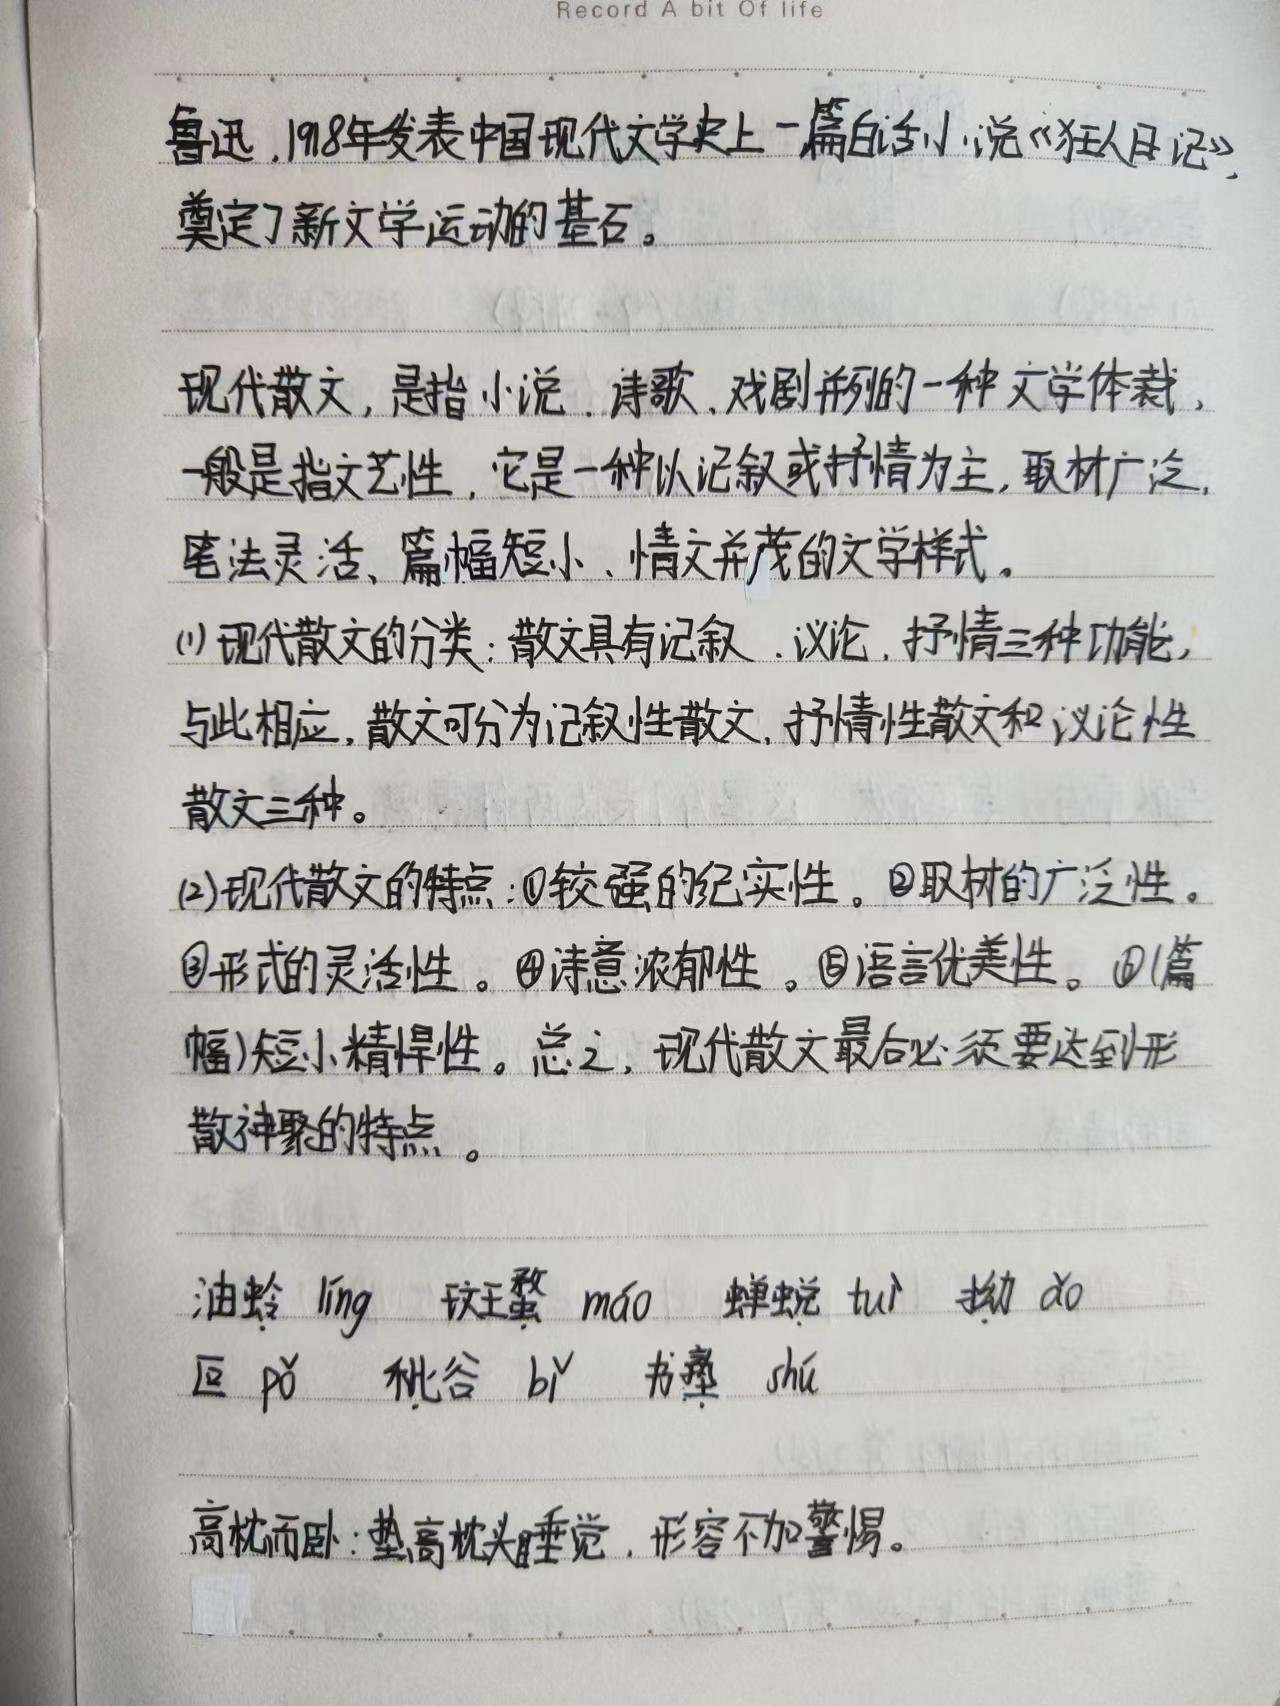 Record A bit Of life
鲁迅,1918年发表中国现代文学史上一篇白话小说《狂人日记》,
奠定了新文学运动的基石。
现代散文,是指小说、诗歌、戏剧并列的一种文学体裁,
一般是指文艺性,它是一种以记叙或抒情为主,取材广泛,
笔法灵活、篇幅短小、情文并茂的文学样式。
(1)现代散文的分类:散文具有记叙、议论、抒情三种功能,
与此相应,散文可分为记叙性散文、抒情性散文和议论性
散文三种。
(2)现代散文的特点:①较强的纪实性。②取材的广泛性。
③形式的灵活性。④诗意浓郁性。⑤语言优美性。⑥(篇
幅)短小精悍性。总之,现代散文最后必须要达到形
散神聚的特点。
油蛉 líng 斑蝥 máo 蝉蜕 tuì 拗 ǎo
叵 pǒ 秕谷 bǐ 书塾 shú
高枕而卧:垫高枕头睡觉,形容不加警惕。